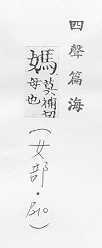 四聲篇海
媽
莫補切
母也
(女部・P10)